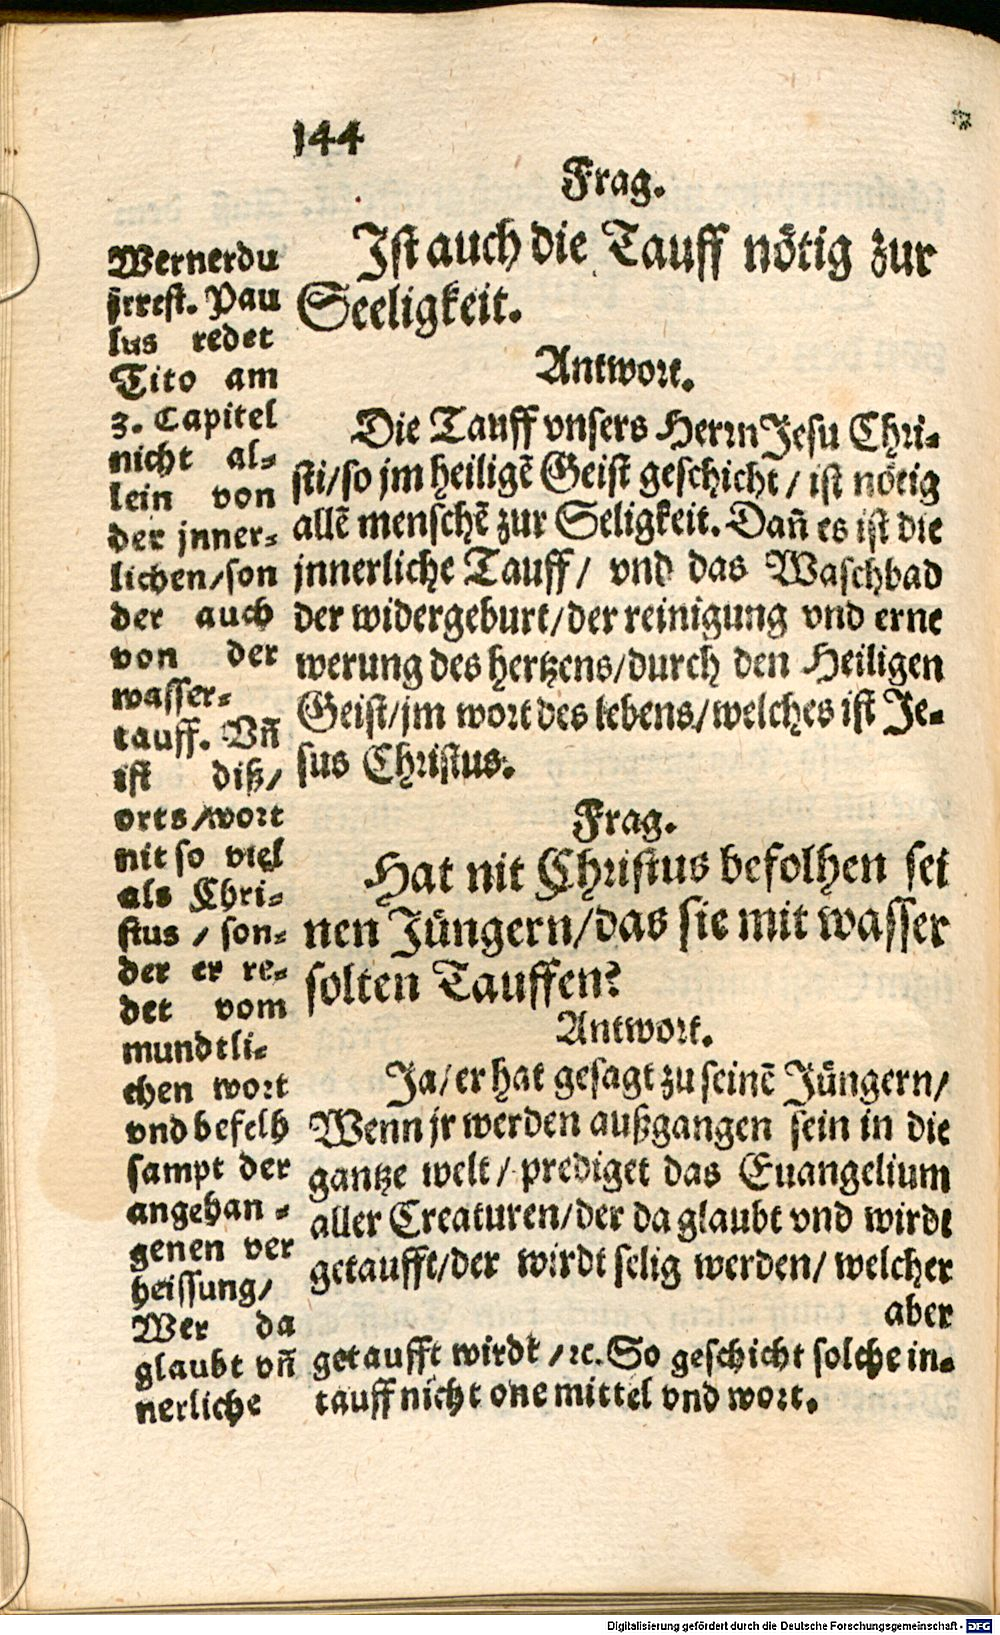 144
Frag.
Ist auch die Tauff nötig zur
Seeligkeit.
Antwort.
Die Tauff vnsers Herrn Jesu Chri-
sti/so jm heiligẽ Geist geschicht / ist nötig
allẽ menschẽ zur Seligkeit. Dañ es ist die
jnnerliche Tauff/ vnd das Waschbad
der widergeburt/der reinigung vnd erne
werung des hertzens/durch den Heiligen
Geist/jm wort des lebens/welches ist Je-
sus Christus.
Frag.
Hat nit Christus befolhen sei
nen Jüngern/das sie mit wasser
solten Tauffen?
Antwort.
Ja/er hat gesagt zu seinẽ Jüngern/
Wenn jr werden außgangen sein in die
gantze welt/prediget das Euangelium
aller Creaturen/der da glaubt vnd wirdt
getaufft/der wirdt selig werden/ welcher
aber
Werner du
jrrest. Pau
lus redet
Tito am
3. Capitel
nicht al-
lein von
der jnner-
lichen/son
der auch
von der
wasser-
tauff. Vñ
ist diß/
orts/wort
nit so viel
als Chri-
stus / son-
der er re-
det vom
mundtli-
chen wort
vnd befelh
sampt der
angehan-
genen ver
heissung/
Wer da
glaubt vñ getaufft wirdt /ꝛc. So geschicht solche in-
nerliche tauff nicht one mittel vnd wort.
Digitalisierung gefördert durch die Deutsche Forschungsgemeinschaft - DFG